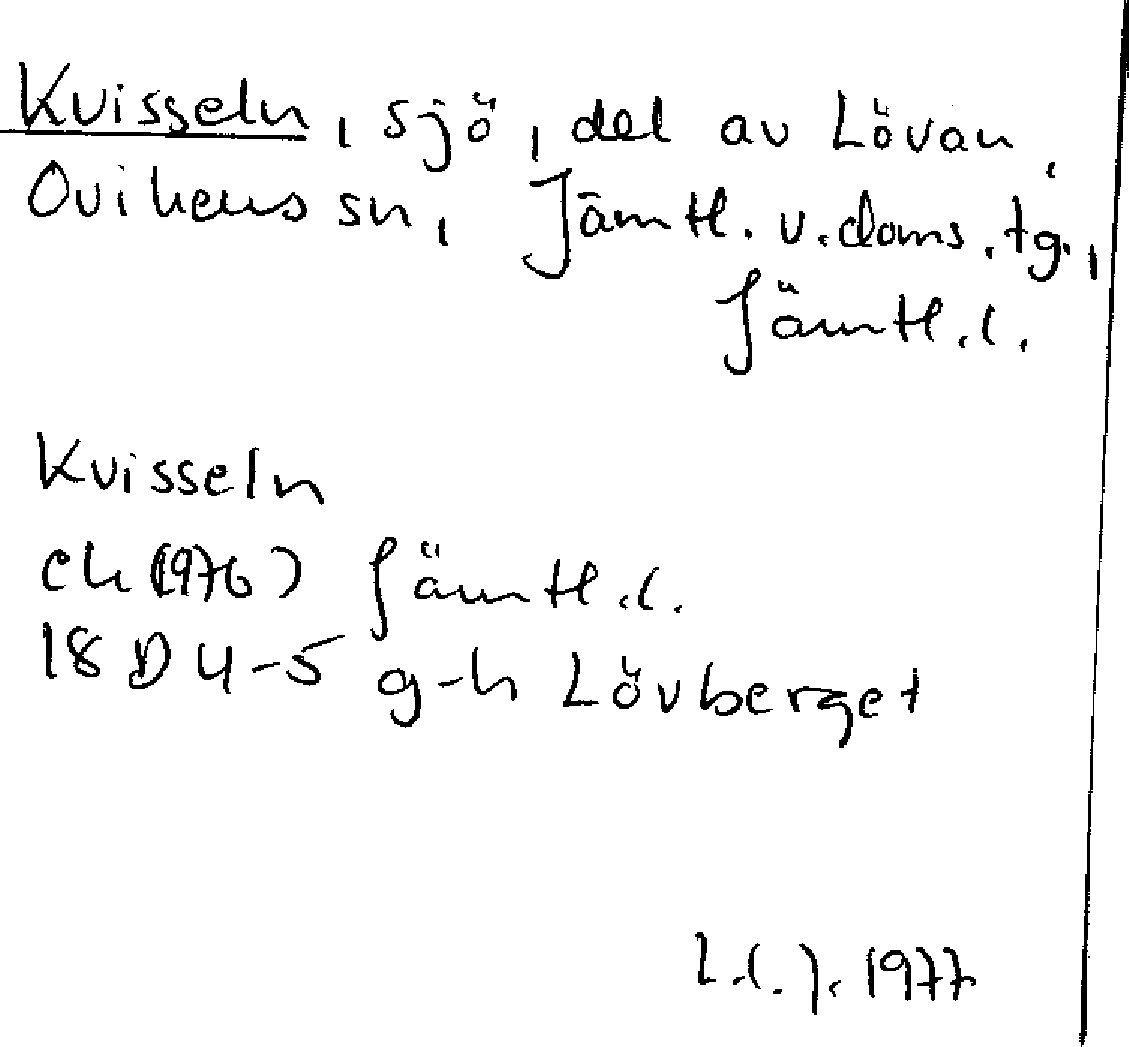 Kvisseln, sjö, del av Lövan,
Ovikens sn, Jämtl. v. doms. tg.,
Jämtl. l.
Kvisseln
ek (1976) Jämtl. l.
18 D 4-5 g-h Lövberget
1977